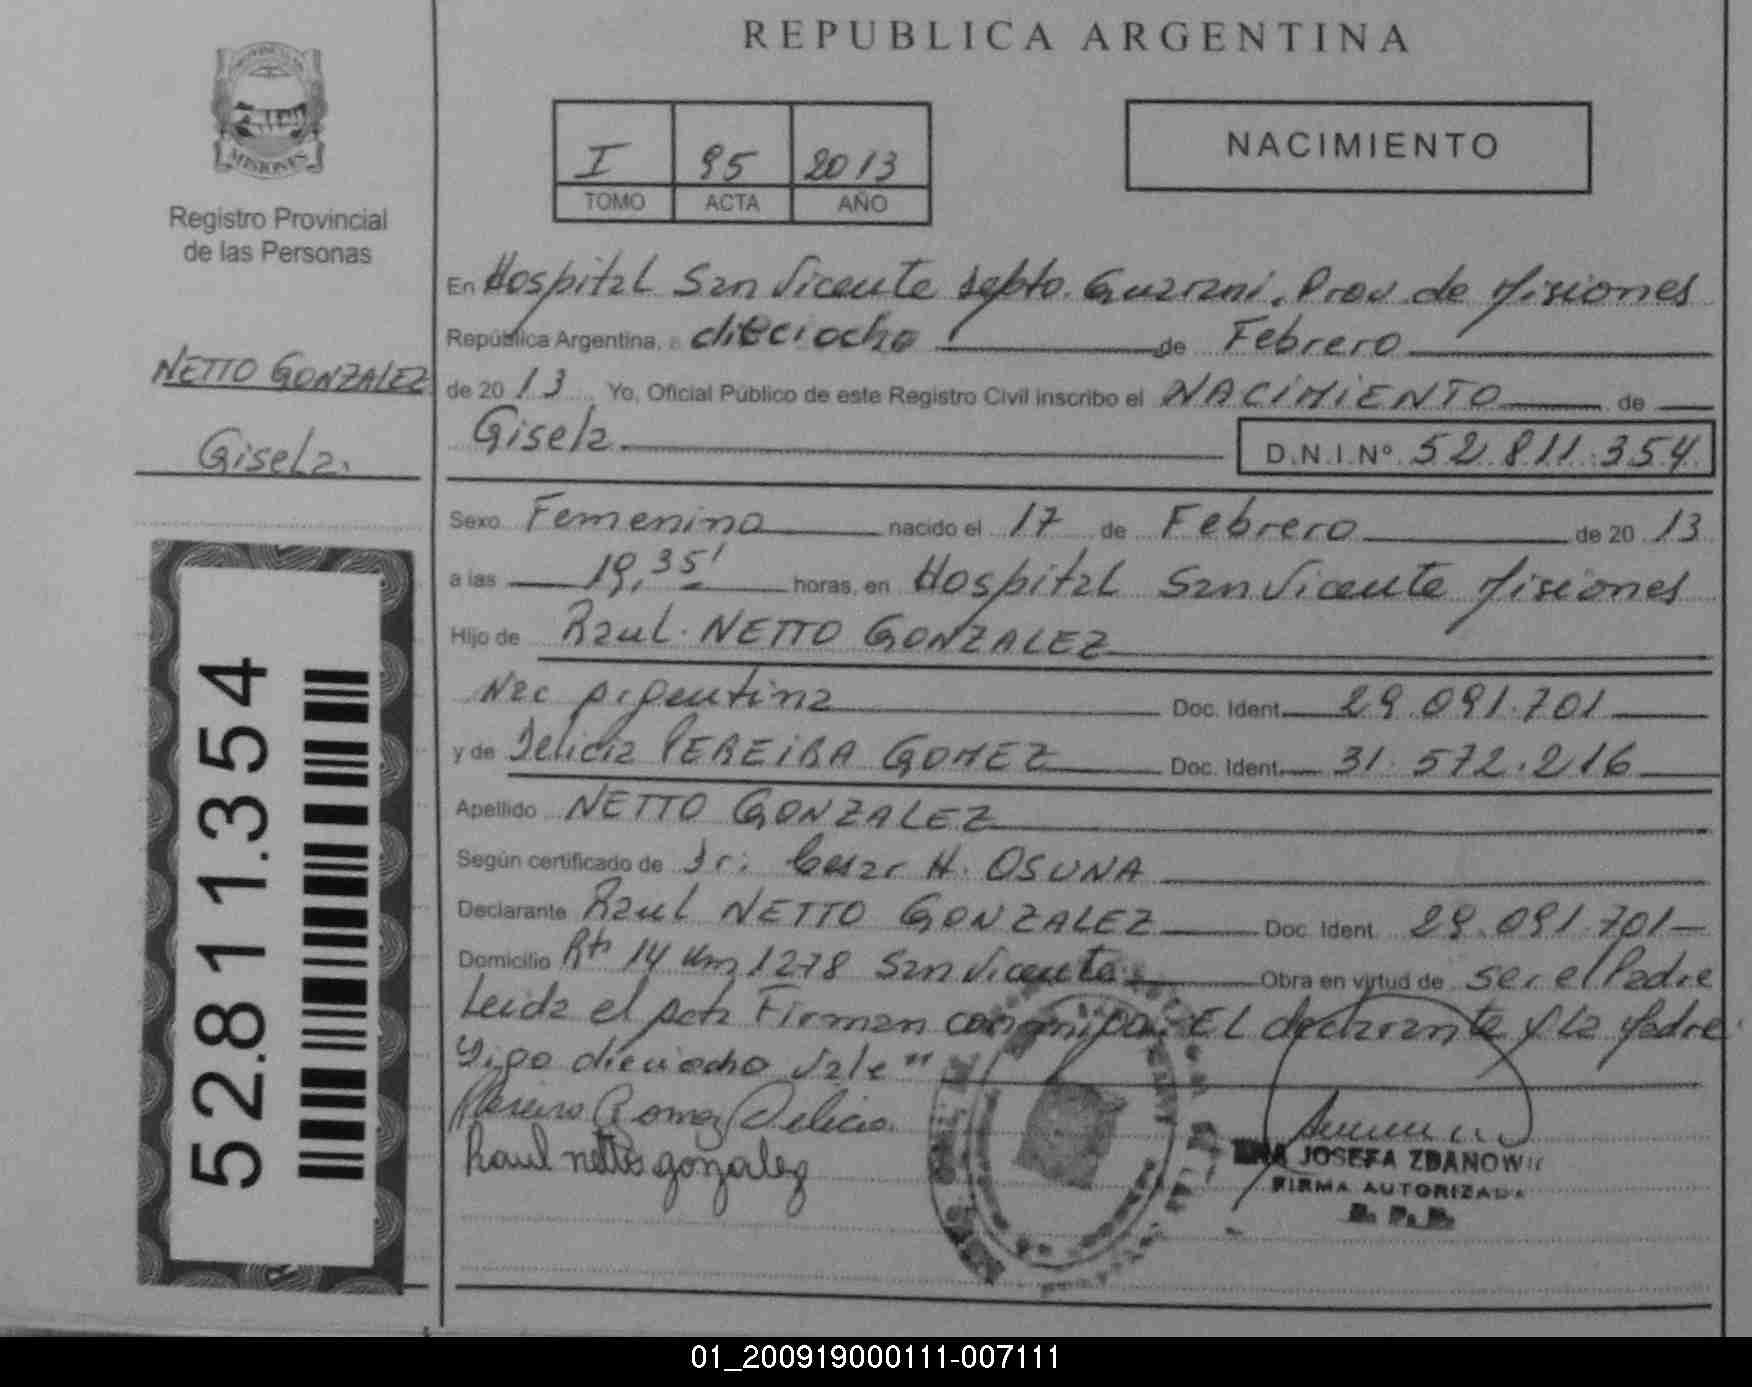 REPUBLICA ARGENTINA
MISIONES
Registro Provincial
de las Personas
I 95 2013
TOMO ACTA AÑO
NACIMIENTO
NETTO GONZALEZ
Gisela.
52.811.354
En Hospital San Vicente Depto. Guarani. Prov de Misiones
República Argentina, a dieciocho de Febrero
de 2013 Yo, Oficial Público de este Registro Civil inscribo el NACIMIENTO de
Gisela D.N.I.Nº 52.811.354
Sexo Femenino nacido el 17 de Febrero de 2013
a las 19,35' horas, en Hospital San Vicente Misiones
Hijo de Raul NETTO GONZALEZ
Nac Argentina Doc. Ident. 29.091.701
y de Delicia PEREIRA GOMEZ Doc. Ident. 31.572.216
Apellido NETTO GONZALEZ
Según certificado de Dr. Cesar H. OSUNA
Declarante Raul NETTO GONZALEZ Doc. Ident. 29.091.701
Domicilio Rta 14 Km 1278 San Vicente Obra en virtud de ser el Padre
Leida el acta Firman conmigo. EL declarante y La Madre
Digo dieciocho Vale"
Pereira Gomez Delicia
Raul netto gonzalez
JOSEFA ZDANOW
FIRMA AUTORIZADA
01_200919000111-007111